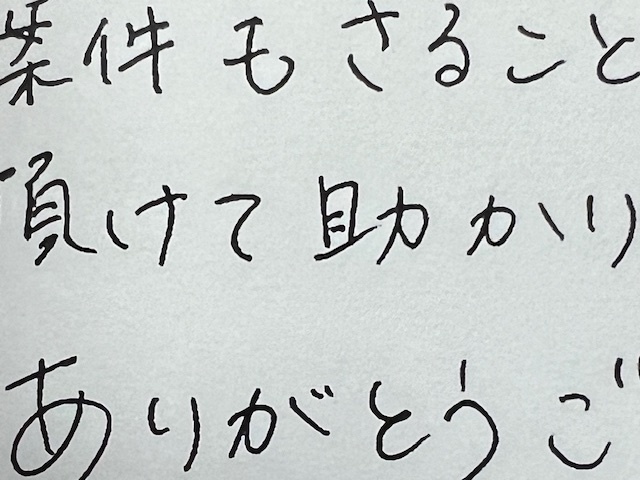 案件もさること
頂けて助かり
ありがとうご